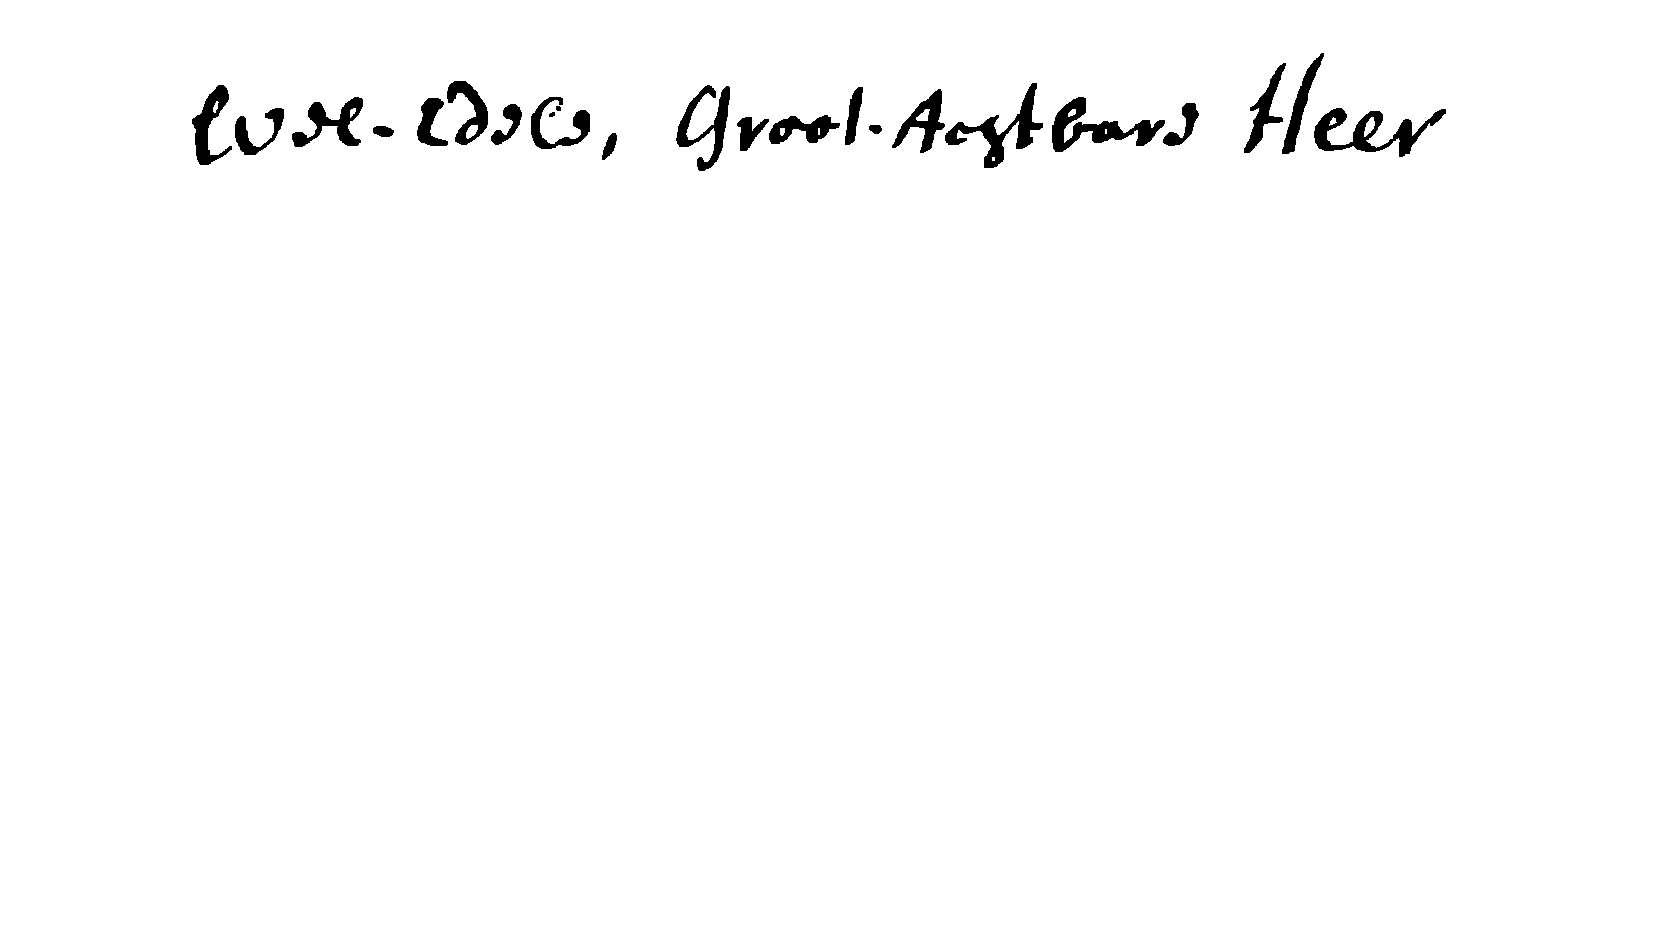 Wel-Edele, Groot-Achtbare Heer